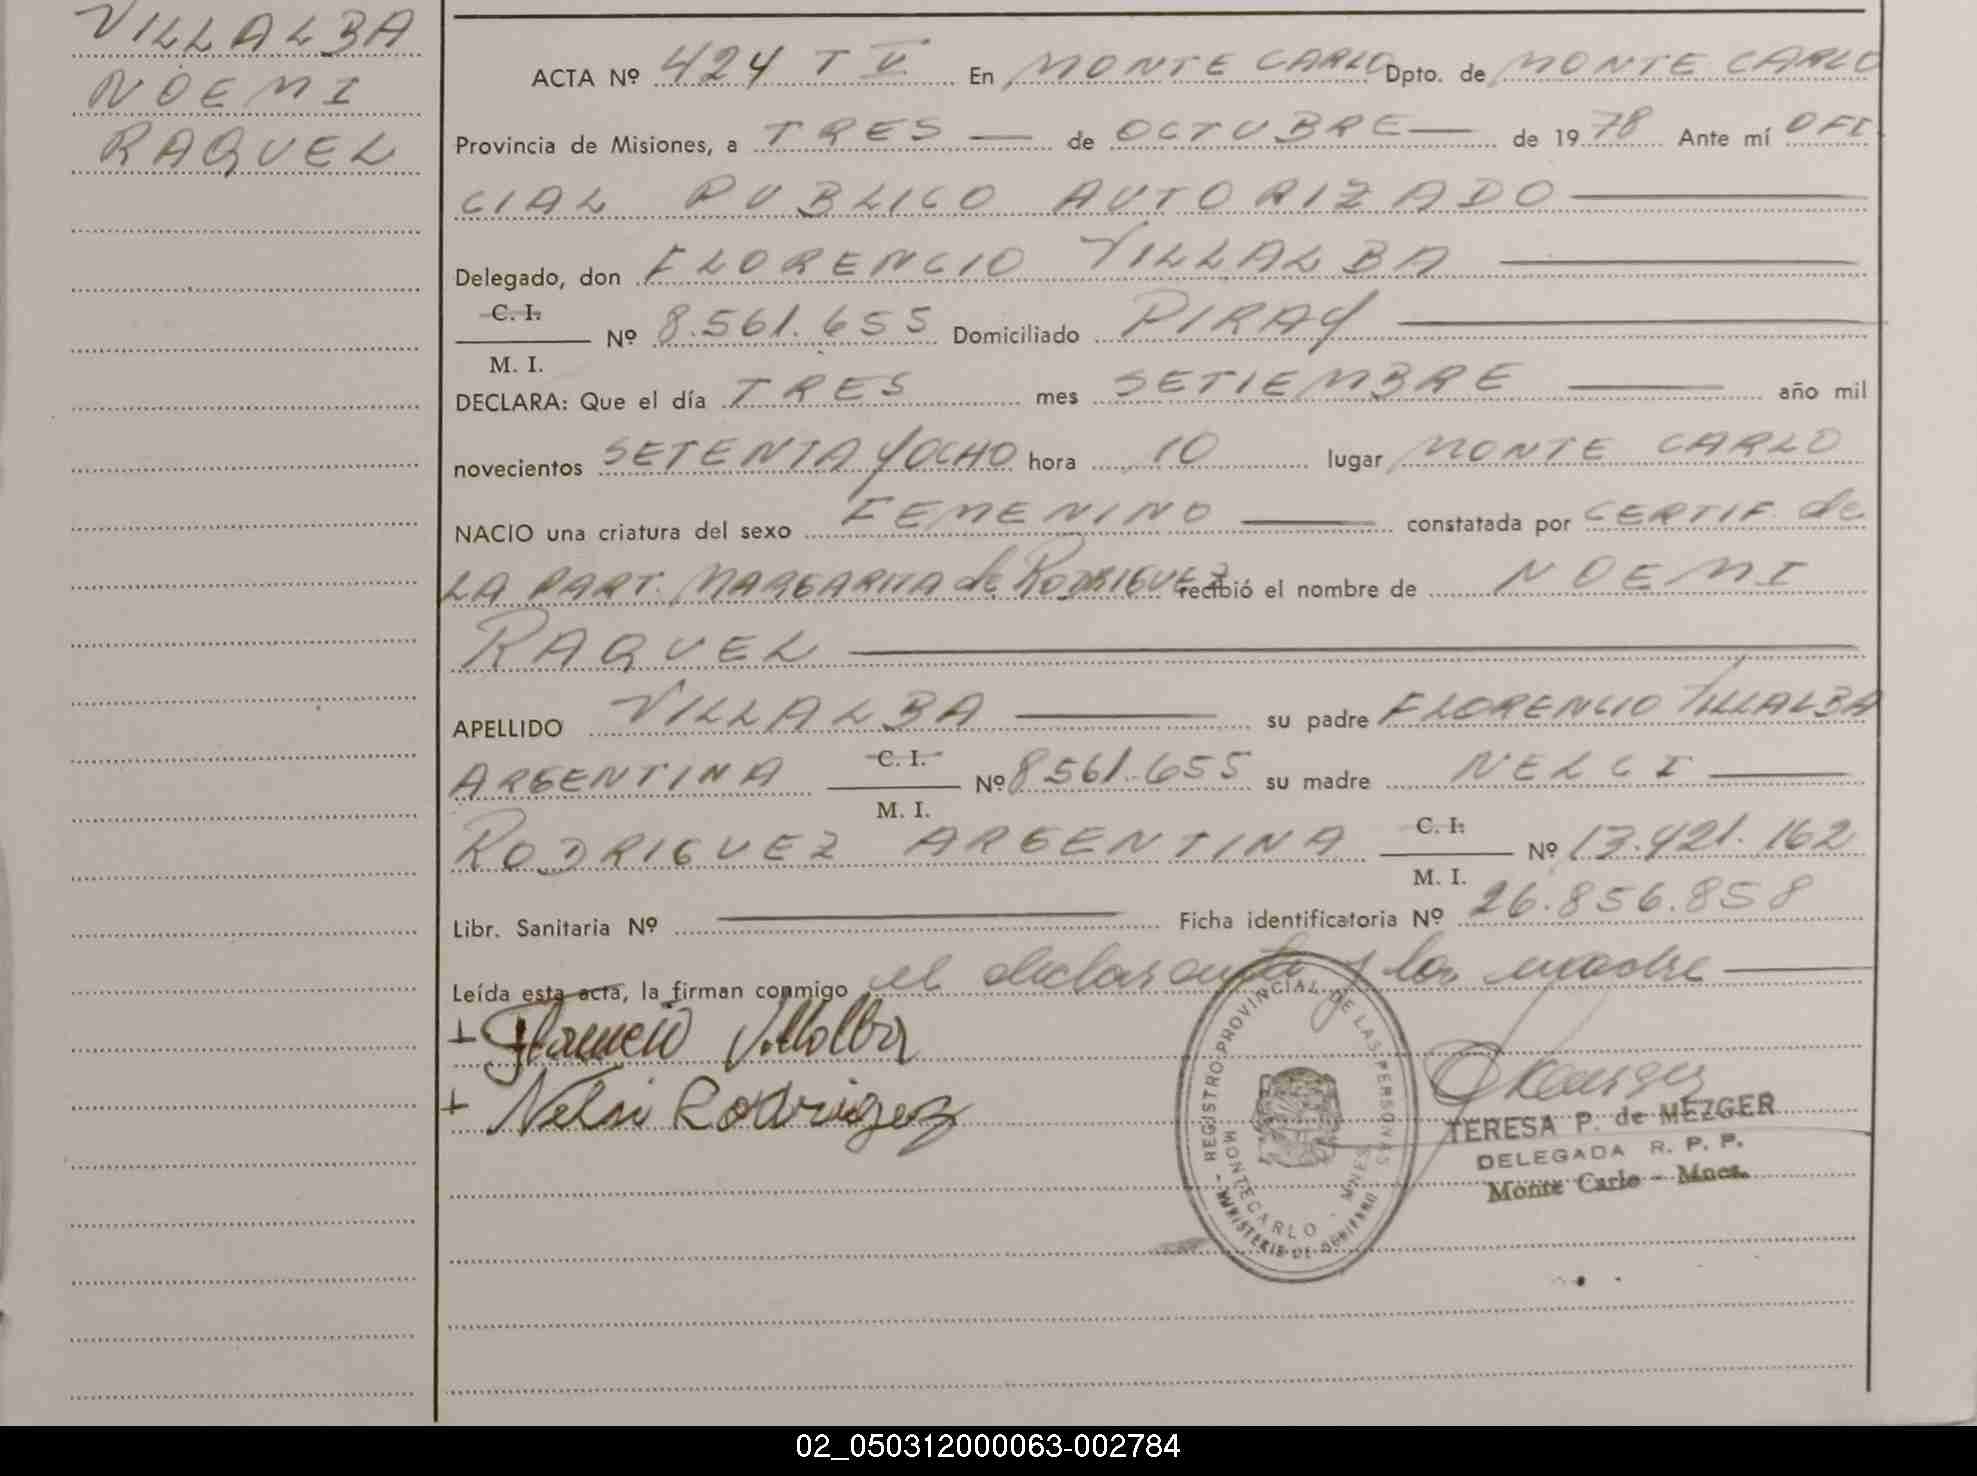 VILLALBA
NOEMI
RAQUEL
ACTA Nº 424 T V En MONTE CARLO Dpto. de MONTE CARLO
Provincia de Misiones, a TRES — de OCTUBRE — de 1978 Ante mí OFI-
CIAL PUBLICO AUTORIZADO
Delegado, don FLORENCIO VILLALBA
C. I.
Nº 8.561.655 Domiciliado PIRAY
M. I.
DECLARA: Que el día TRES mes SETIEMBRE año mil
novecientos SETENTA Y OCHO hora 10 lugar MONTE CARLO
NACIO una criatura del sexo FEMENINO constatada por CERTIF de
LA PART. MARGARITA de RODRIGUEZ recibió el nombre de NOEMI
RAQUEL
APELLIDO VILLALBA su padre FLORENCIO VILLALBA
ARGENTINA C. I. Nº 8561.655 su madre NELCI
M. I.
RODRIGUEZ ARGENTINA C. I. Nº 13.421.162
M. I.
Libr. Sanitaria Nº Ficha identificatoria Nº 26.856.858
Leída esta acta, la firman conmigo el declarante y la madre
+ Florencio Villalba
+ Nelsi Rodriguez
REGISTRO PROVINCIAL DE LAS PERSONAS
MONTECARLO - MNES
MINISTERIO DE GOBIERNO
TERESA P. de MEZGER
DELEGADA R. P. P.
Monte Carlo - Mnes.
02_050312000063-002784